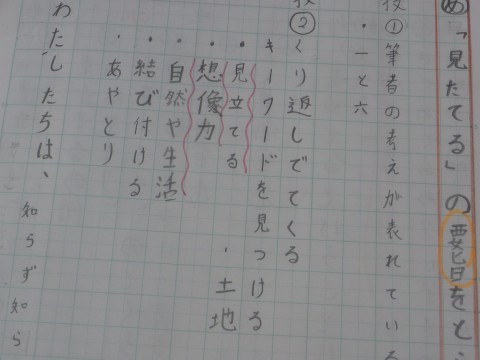 め「見たてる」の要旨をと
①筆者の考えが表れている
・一と六
②くり返しでてくる
キーワードを見つける
・見立てる ・土地
・想像力
・自然や生活
・結び付ける
・あやとり
わたしたちは、知らず知ら